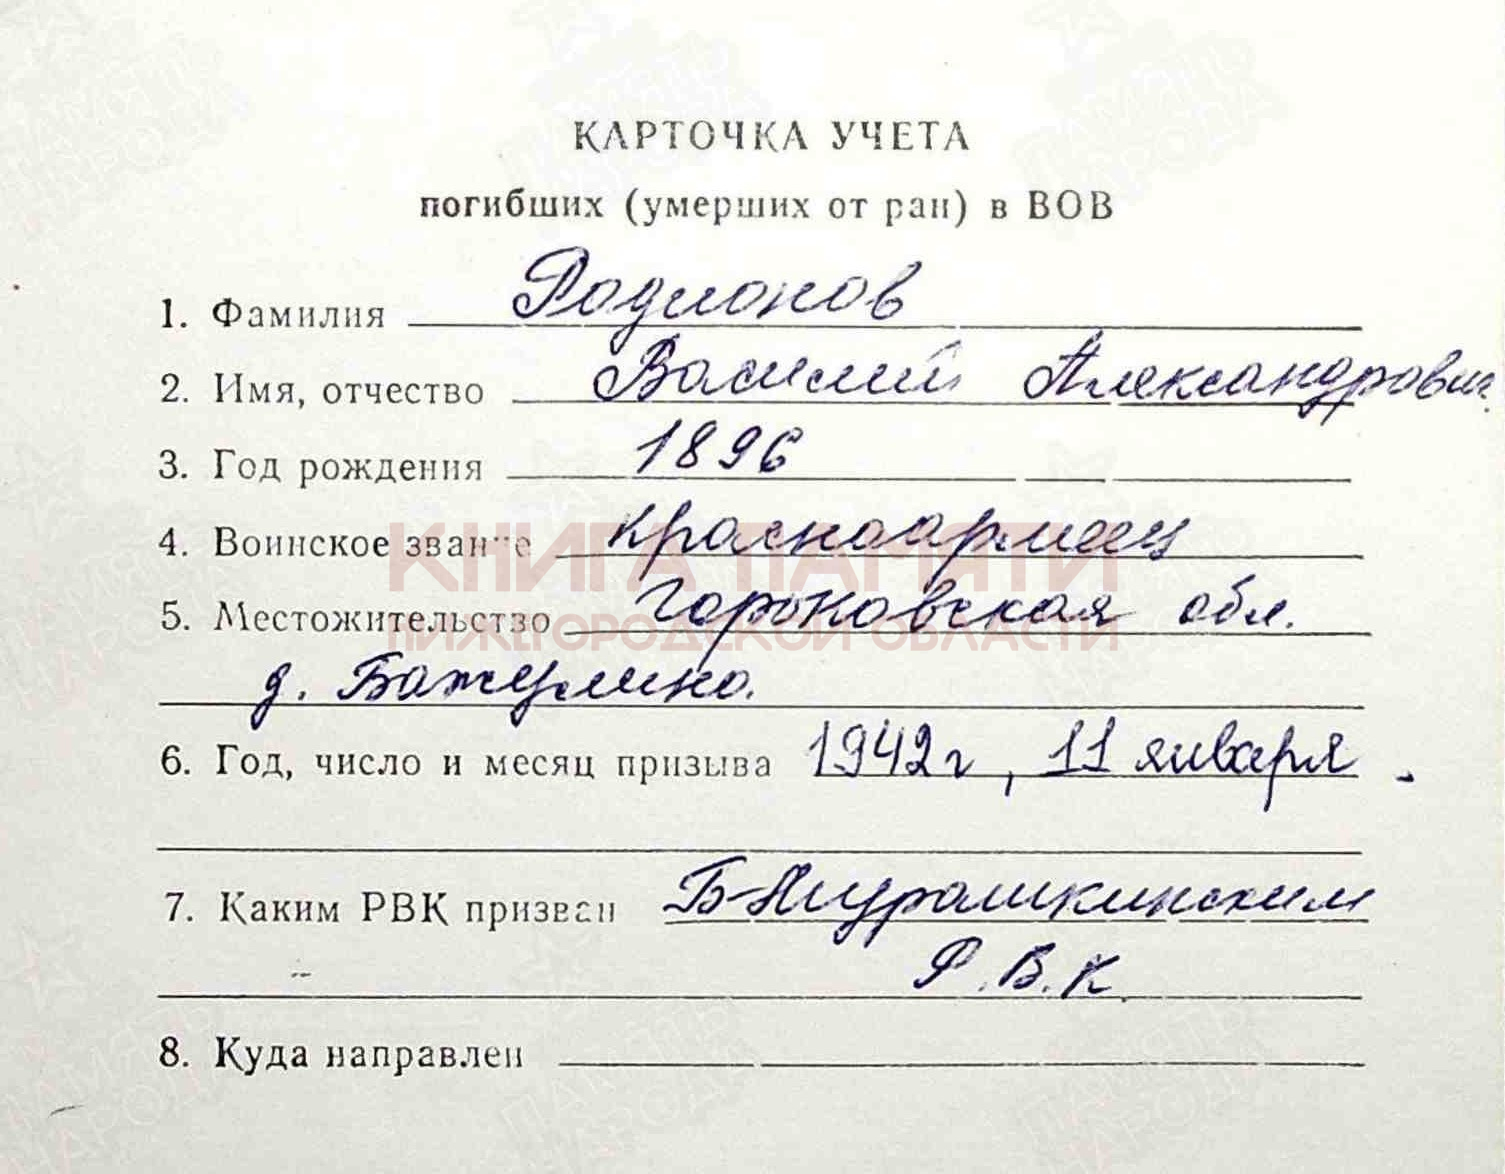 КАРТОЧКА УЧЕТА
погибших (умерших от ран) в ВОВ
1. Фамилия Родионов
2. Имя, отчество Василий Александрович
3. Год рождения 1896
4. Воинское звание красноармеец
КНИГА ПАМЯТИ
5. Местожительство Горьковская обл.
НИЖЕГОРОДСКОЙ ОБЛАСТИ
д. Бажулино.
6. Год, число и месяц призыва 1942 г, 11 января.
7. Каким РВК призван Б-Мурашкинским
Р.В.К.
8. Куда направлен